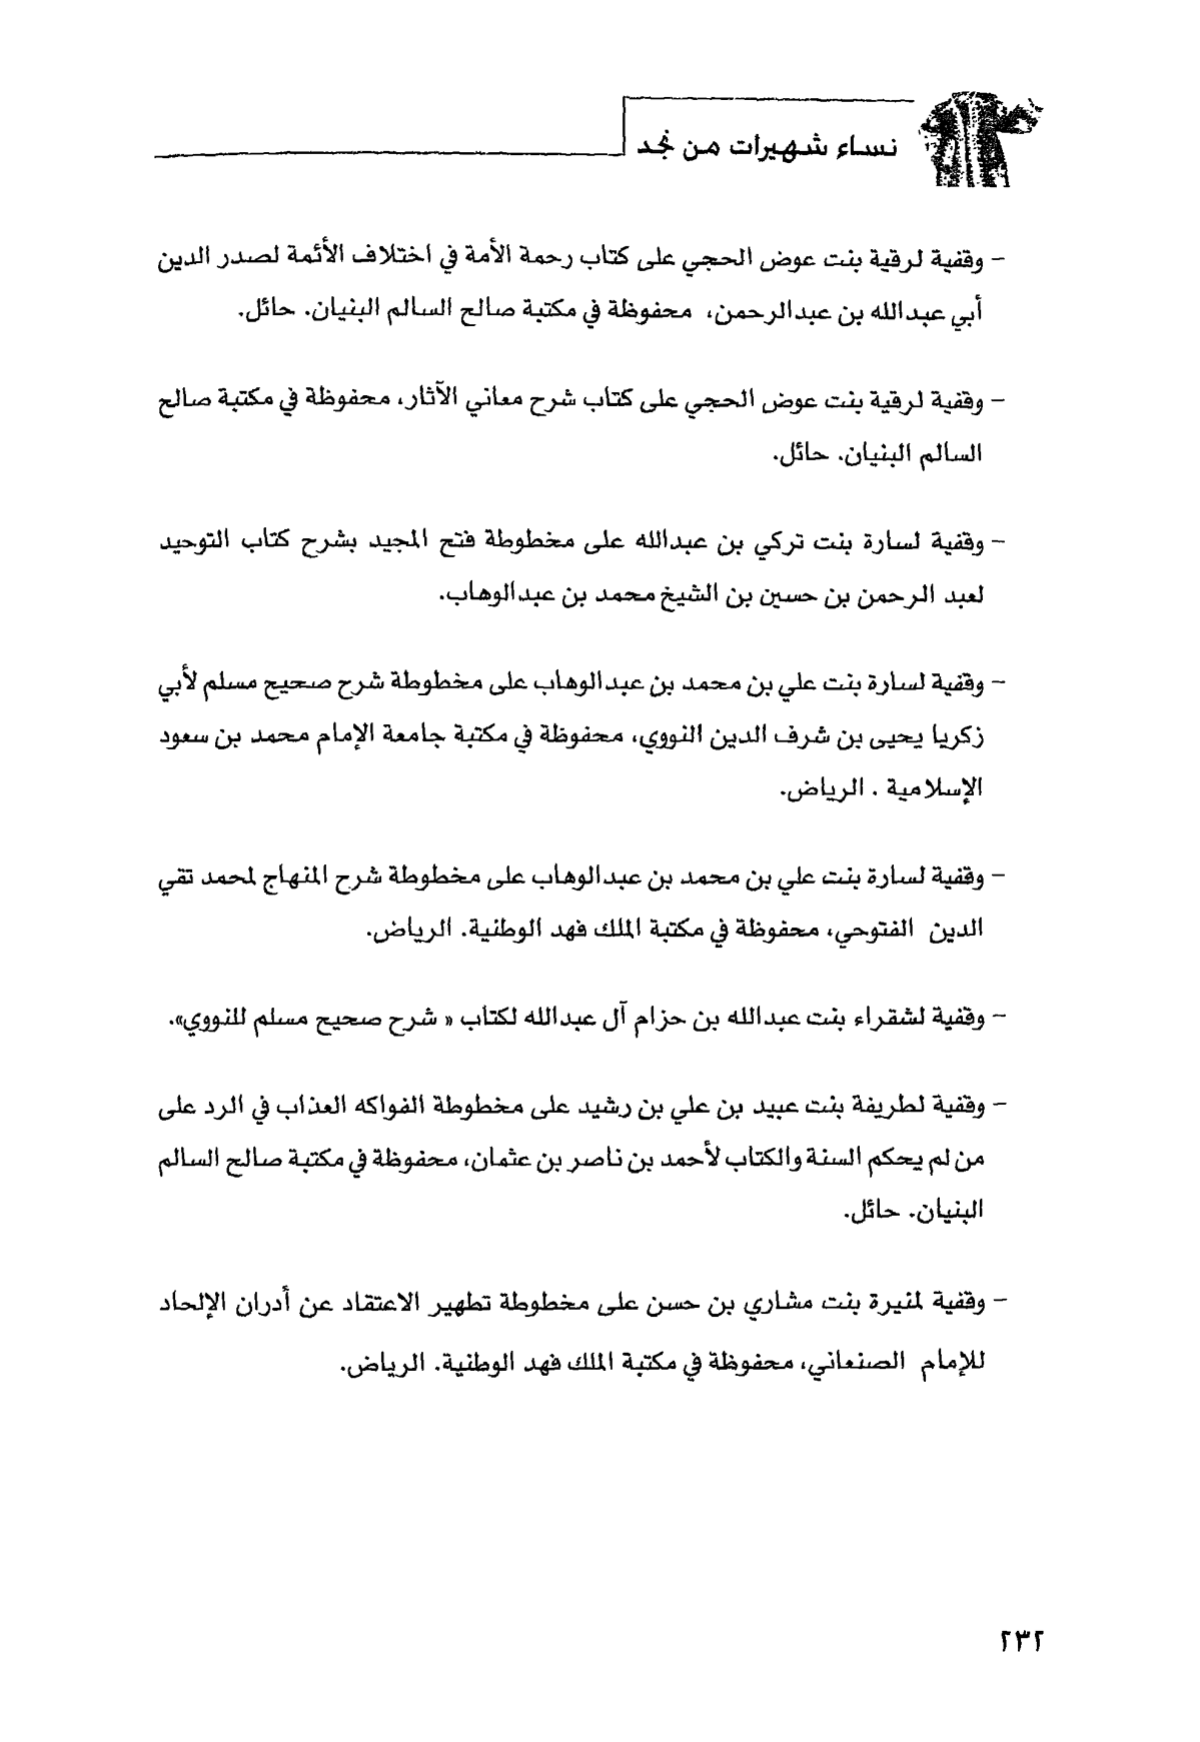 نساء شهيرات من نجد
- وقفية لرقية بنت عوض الحجي على كتاب رحمة الأمة في اختلاف الأئمة لصدر الدين
أبي عبدالله بن عبدالرحمن، محفوظة في مكتبة صالح السالم البنيان. حائل.
- وقفية لرقية بنت عوض الحجي على كتاب شرح معاني الآثار، محفوظة في مكتبة صالح
السالم البنيان. حائل.
- وقفية لسارة بنت تركي بن عبدالله على مخطوطة فتح المجيد بشرح كتاب التوحيد
لعبد الرحمن بن حسين بن الشيخ محمد بن عبدالوهاب.
- وقفية لسارة بنت علي بن محمد بن عبدالوهاب على مخطوطة شرح صحيح مسلم لأبي
زكريا يحيى بن شرف الدين النووي، محفوظة في مكتبة جامعة الإمام محمد بن سعود
الإسلامية . الرياض.
- وقفية لسارة بنت علي بن محمد بن عبدالوهاب على مخطوطة شرح المنهاج لمحمد تقي
الدين الفتوحي، محفوظة في مكتبة الملك فهد الوطنية. الرياض.
- وقفية لشقراء بنت عبدالله بن حزام آل عبدالله لكتاب « شرح صحيح مسلم للنووي».
- وقفية لطريفة بنت عبيد بن علي بن رشيد على مخطوطة الفواكه العذاب في الرد على
من لم يحكم السنة والكتاب لأحمد بن ناصر بن عثمان، محفوظة في مكتبة صالح السالم
البنيان. حائل.
- وقفية لمنيرة بنت مشاري بن حسن على مخطوطة تطهير الاعتقاد عن أدران الإلحاد
للإمام الصنعاني، محفوظة في مكتبة الملك فهد الوطنية. الرياض.
٢٣٢